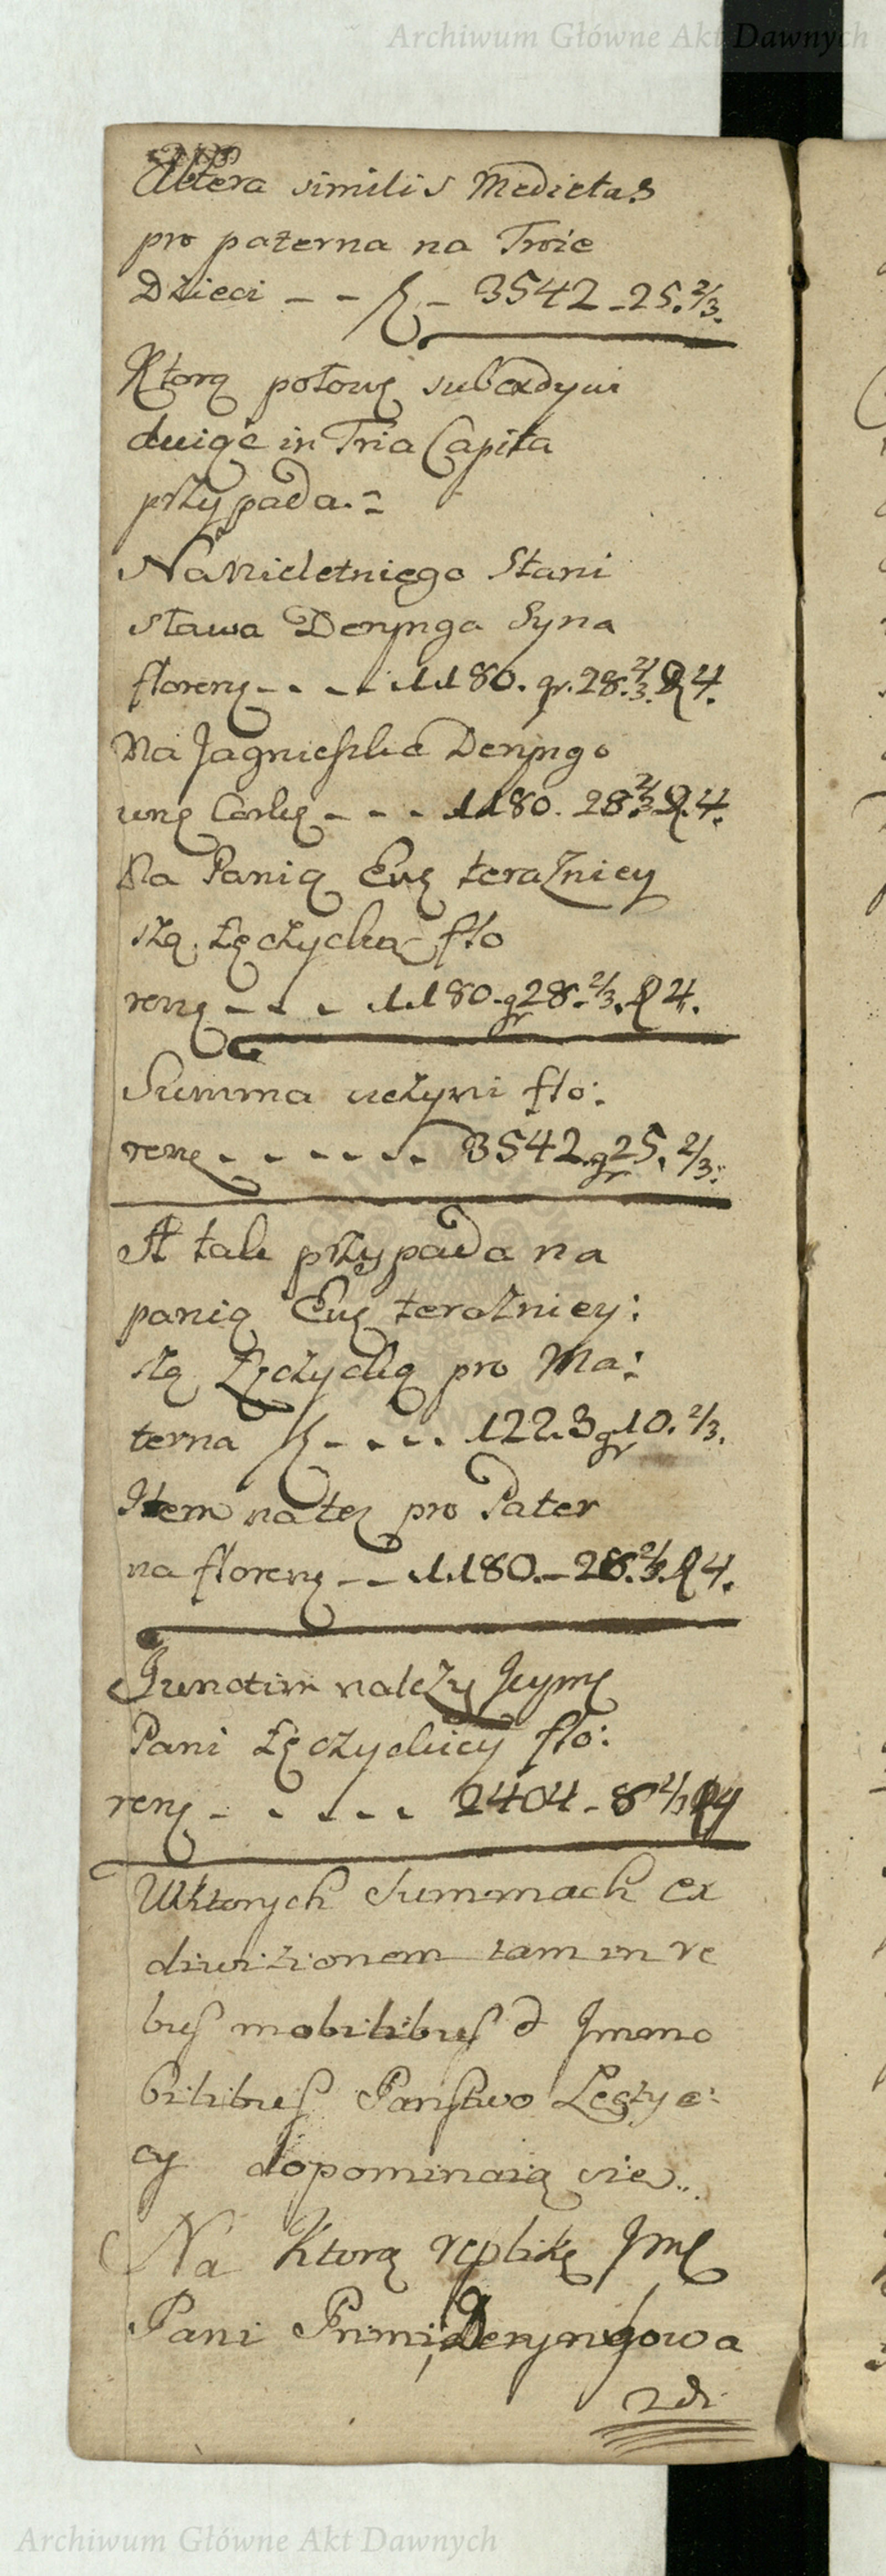 Archiwum Główne Akt Dawnych
Altera similis Medietas
pro paterna na Troie
Dzieci - - fl - 3542 - 25. 2/3.
Ktorą połowę subdywi
duiąc in Tria Capita
przypada.=
Na Nieletniego Stani
sława Derynga Syna
floreny - - - - 1180. gr. 28. 2/3. d 4.
Na Jagnieszkę Deryngo
wnę Corkę - - - 1180. 28 2/3 d. 4.
Na Panią Ewę teraźniey
szą Łęczycką flo
reny - - - 1180. gr 28. 2/3. d 4.
Summa uczyni flo:
reny - - - - - - 3542 gr 25. 2/3.
A tak przypada na
panią Ewę teraźniey:
szą Łęczycką pro Ma:
terna fl - - - - 1223 gr 10. 2/3.
Item na tęż pro Pater
na floreny - - 1180. - 28. 2/3. d 4.
Junctim należy Jeymę
Pani Łęczyckiey flo:
reny - - - - - 2404 - 8 2/3 d 4
W Ktorych Summach ex
diwizionem tam in re
bus mobilibus & Immo
bilibus Państwo Łęczyc:
cy dopominaią się..
Na Ktorą replikę Jmę
Pani Primi Deryngowa
Archiwum Główne Akt Dawnych